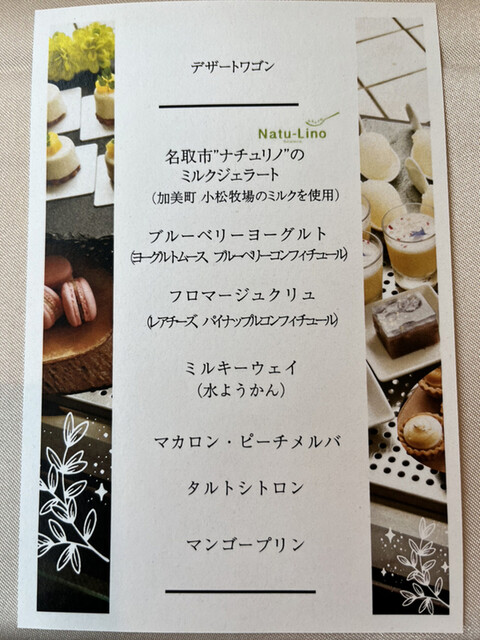 デザートワゴン
Natu-Lino
名取市"ナチュリノ"の
ミルクジェラート
(加美町 小松牧場のミルクを使用)
ブルーベリーヨーグルト
(ヨーグルトムース、ブルーベリーコンフィチュール)
フロマージュクリュ
(レアチーズ、パイナップルコンフィチュール)
ミルキーウェイ
(水ようかん)
マカロン・ピーチメルバ
タルトシトロン
マンゴープリン